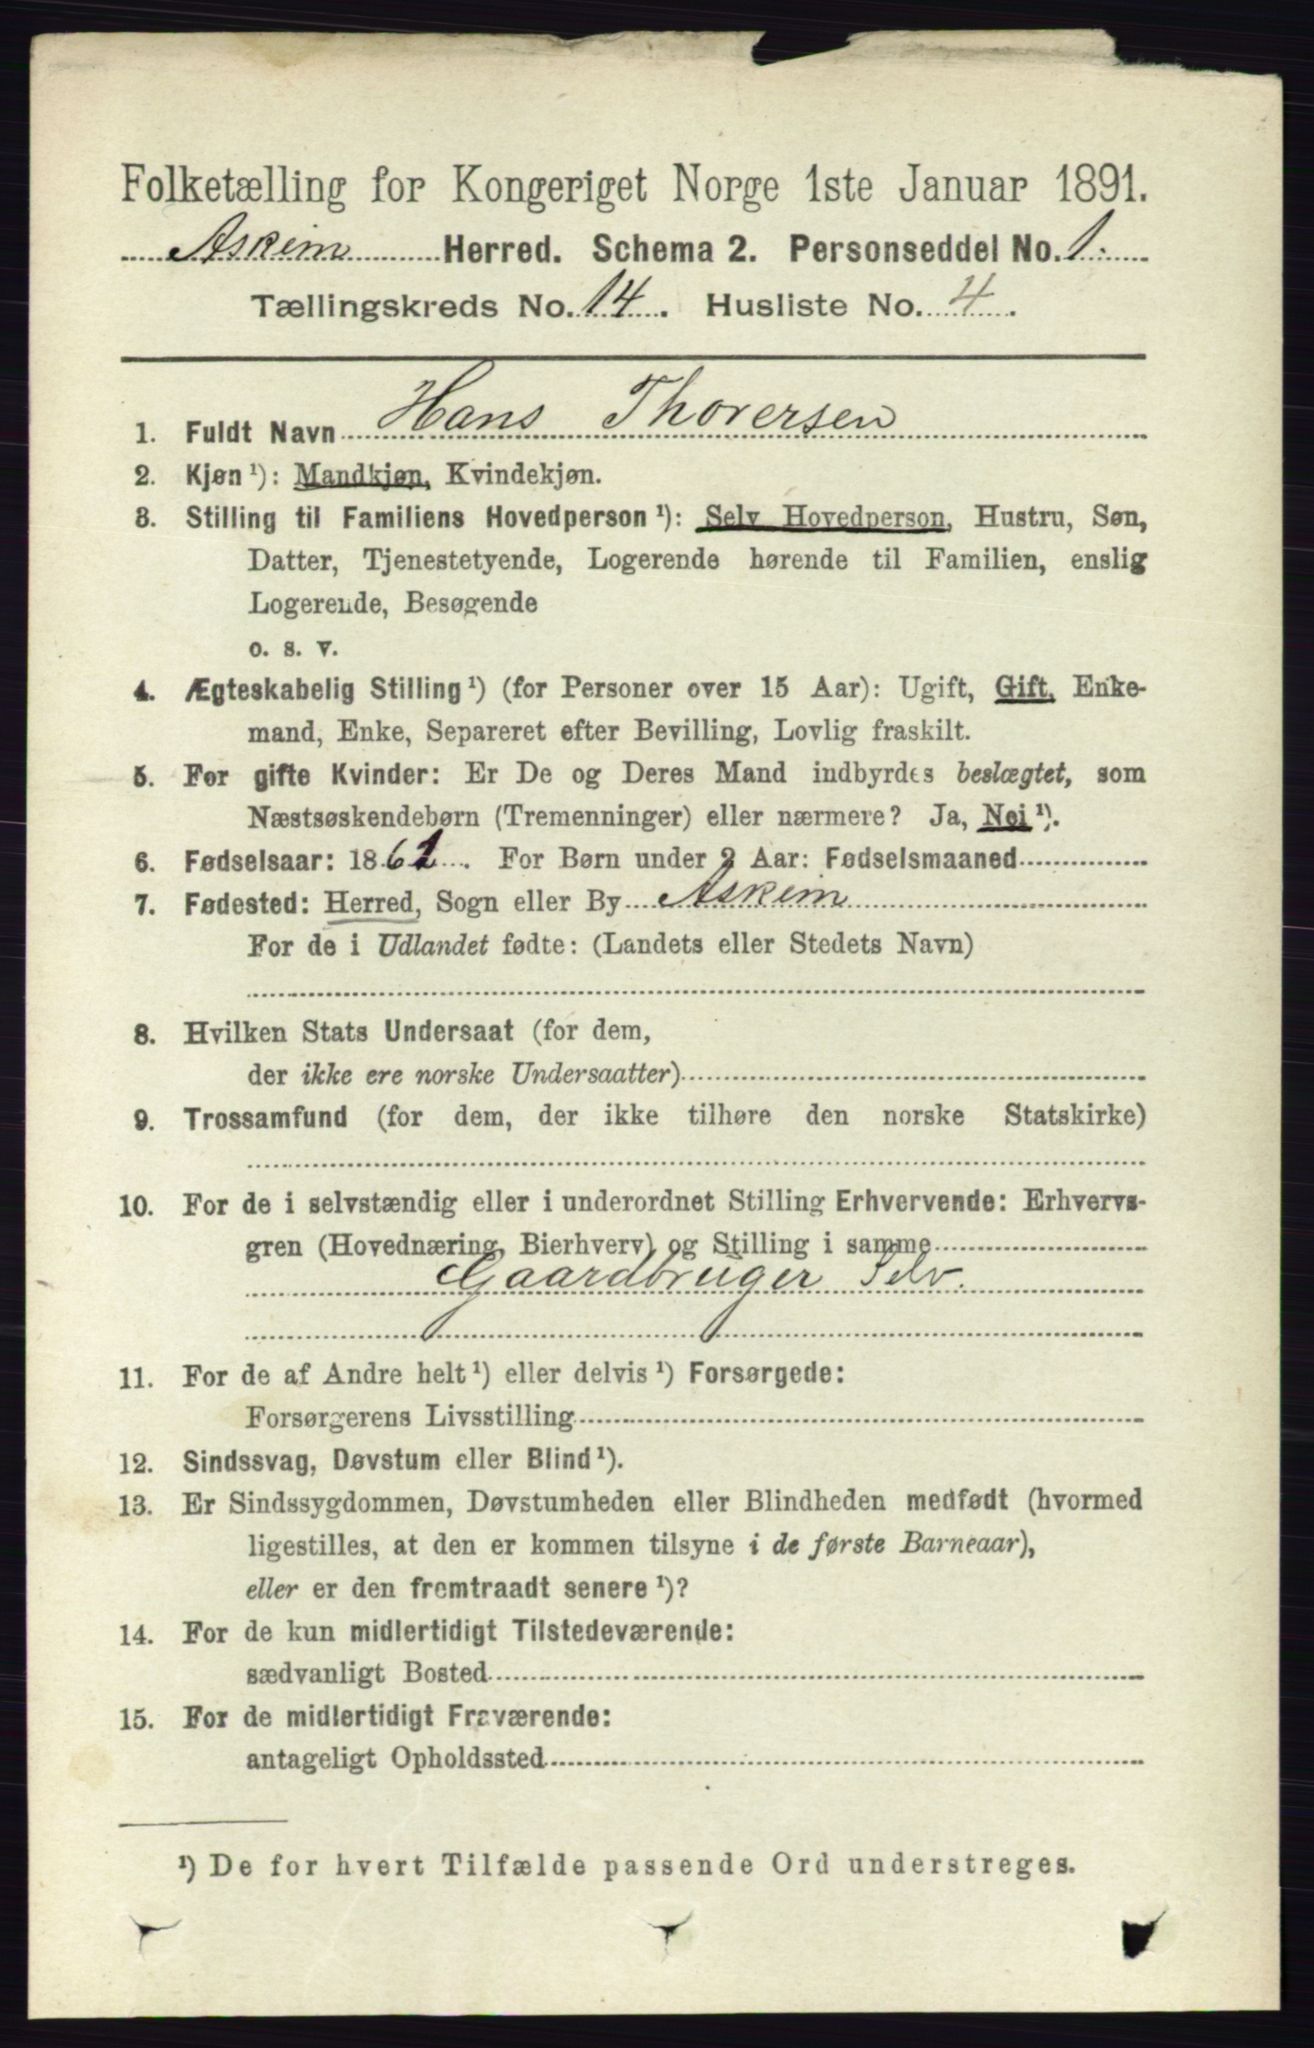 Folketælling for Kongeriget Norge 1ste Januar 1891.
Askim Herred. Schema 2. Personseddel No. 1.
Tællingskreds No. 14. Husliste No. 4.
1. Fuldt Navn Hans Thoversen
2. Kjøn ¹): Mandkjøn, Kvindekjøn.
3. Stilling til Familiens Hovedperson ¹): Selv Hovedperson, Hustru, Søn,
Datter, Tjenestetyende, Logerende hørende til Familien, enslig
Logerende, Besøgende
o. s. v.
4. Ægteskabelig Stilling ¹) (for Personer over 15 Aar): Ugift, Gift, Enke-
mand, Enke, Separeret efter Bevilling, Lovlig fraskilt.
5. For gifte Kvinder: Er De og Deres Mand indbyrdes beslægtet, som
Næstsøskendebørn (Tremenninger) eller nærmere? Ja, Nei ¹).
6. Fødselsaar: 1861. For Børn under 2 Aar: Fødselsmaaned
7. Fødested: Herred, Sogn eller By Askim
For de i Udlandet fødte: (Landets eller Stedets Navn)
8. Hvilken Stats Undersaat (for dem,
der ikke ere norske Undersaatter)
9. Trossamfund (for dem, der ikke tilhøre den norske Statskirke)
10. For de i selvstændig eller i underordnet Stilling Erhvervende: Erhvervs-
gren (Hovednæring, Bierhverv) og Stilling i samme
Gaardbruger Selv.
11. For de af Andre helt ¹) eller delvis ¹) Forsørgede:
Forsørgerens Livsstilling
12. Sindssvag, Døvstum eller Blind ¹).
13. Er Sindssygdommen, Døvstumheden eller Blindheden medfødt (hvormed
ligestilles, at den er kommen tilsyne i de første Barneaar),
eller er den fremtraadt senere ¹)?
14. For de kun midlertidigt Tilstedeværende:
sædvanligt Bosted
15. For de midlertidigt Fraværende:
antageligt Opholdssted
¹) De for hvert Tilfælde passende Ord understreges.